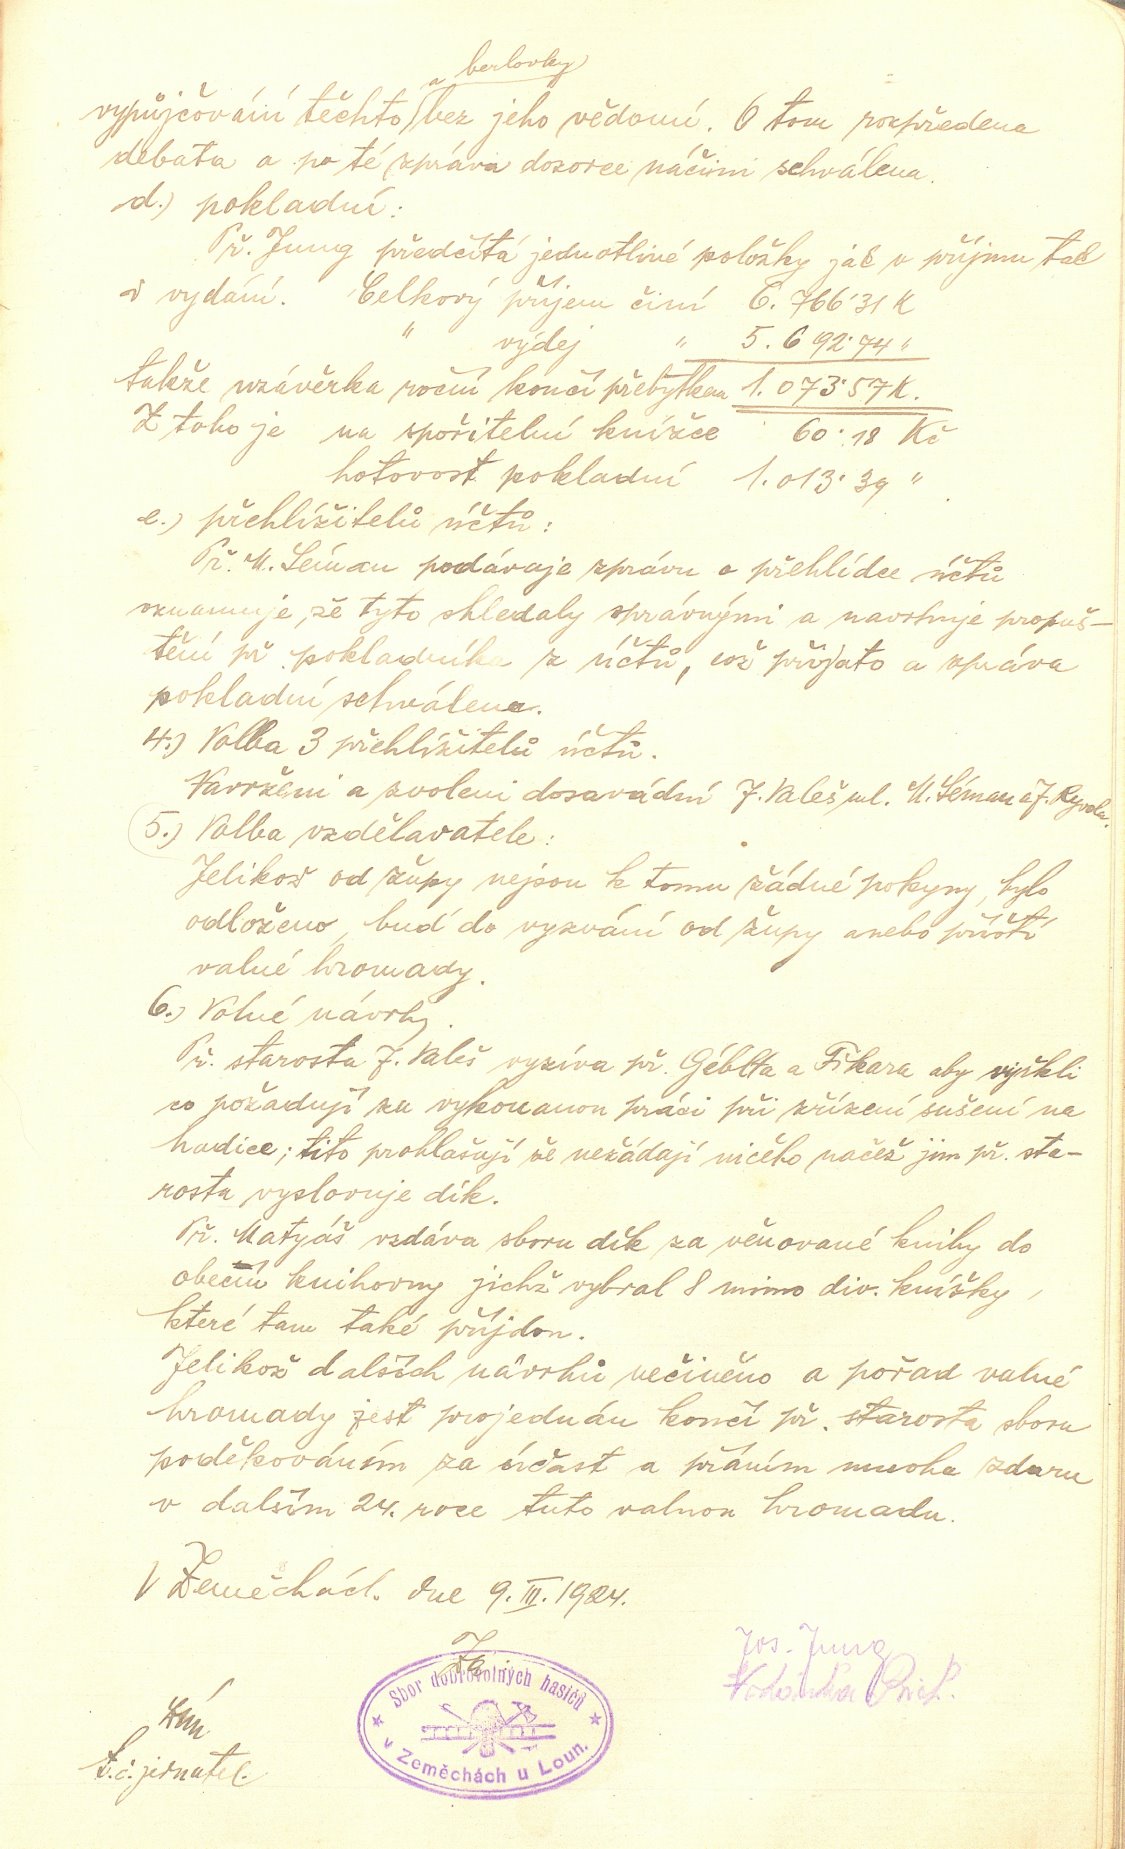 a berlovky
vypůjčování těchto bez jeho vědomí. O tom rozpředena
debata a po té zpráva dozorce náčiní schválena.
d.) pokladní:
Př. Jung předčítá jednotlivé položky jak v příjmu tak
v vydání. Celkový příjem činí 6.766·31 K
" výdej " 5.692·74 "
takže uzávěrka roční končí přebytkem 1.073·57 K.
Z toho je na spořitelní knížce 60·18 Kč
hotovost pokladní 1.013·39 "
e.) přehlížitelů účtů:
Př. M. Léman podávaje zprávu o přehlídce účtů
oznamuje, že tyto shledaly správnými a navrhuje propuš-
tění př. pokladníka z účtů, což přijato a zpráva
pokladní schválena.
4.) Volba 3 přehlížitelů účtů.
Navrženi a zvoleni dosavádní J. Valeš ml. M. Léman a J. Ryvola.
5.) Volba vzdělavatele:
Jelikož od župy nejsou k tomu žádné pokyny, bylo
odloženo, buď do vyzvání od župy anebo příští
valné hromady.
6.) Volné návrhy.
Př. starosta J. Valeš vyzíva př. Géblta a Fikara aby vyřkli
co požadují za vykonanou práci při zřízení sušení na
hadice; tito prohlašují že nežádají ničeho načež jim př. sta-
rosta vyslovuje dík.
Př. Matyáš vzdáva sboru dík za věnované knihy do
obecní knihovny jichž vybral 8 mimo div. knížky,
které tam také příjdou.
Jelikož dalších návrhů nečiněno a pořad valné
hromady jest projednán končí př. starosta sboru
poděkováním za účast a přáním mnoha zdaru
v dalším 24. roce tuto valnou hromadu.
V Zeměchách. dne 9.III.1924.
Za
Jos. Jung
Sbor dobrovolných hasičů
v Zeměchách u Loun.
t.č. jednatel.